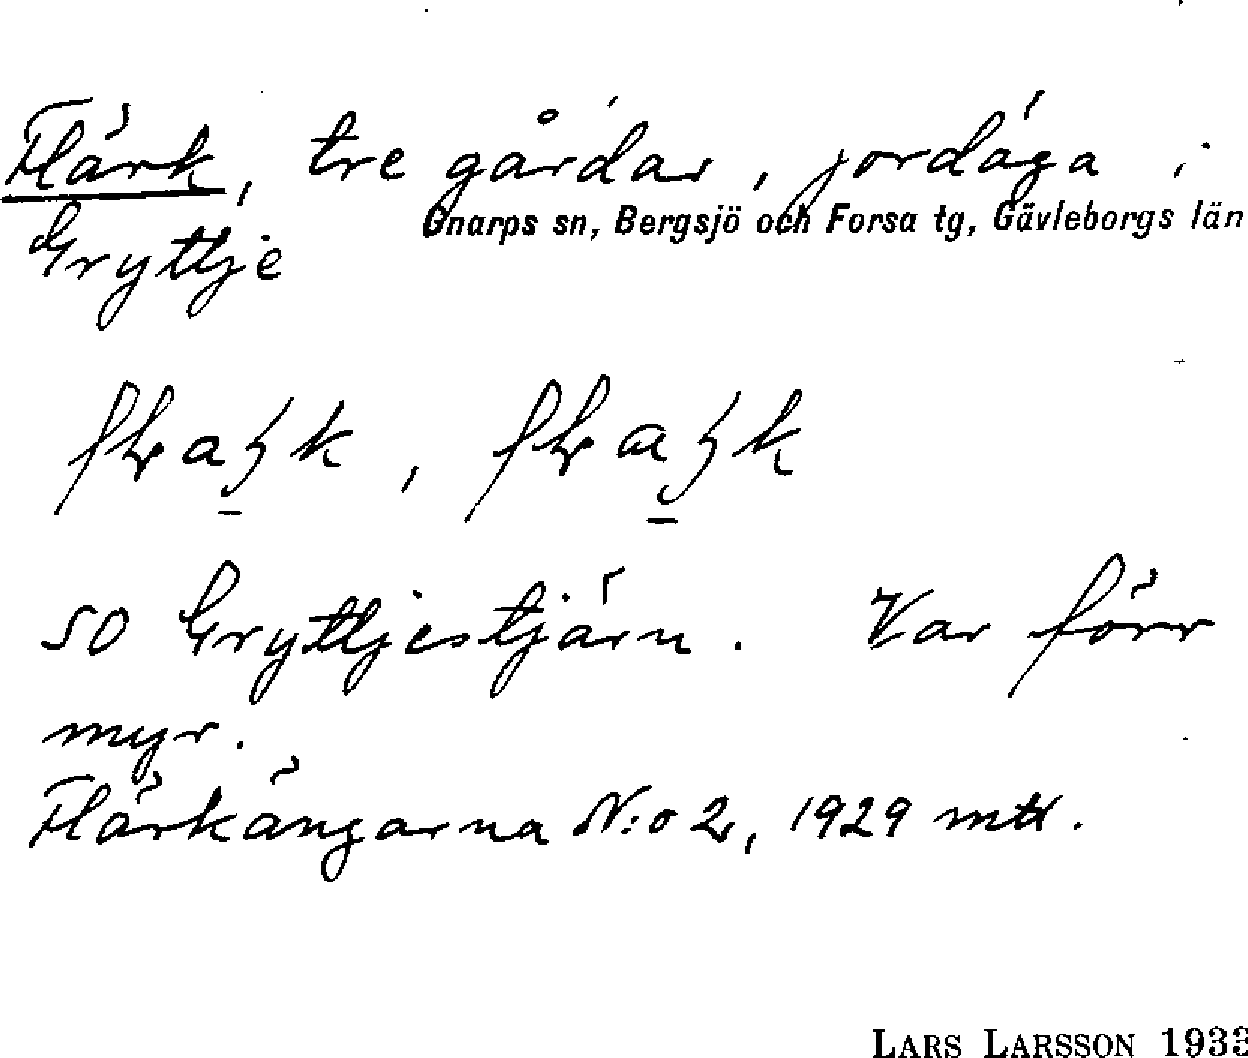 Flärk, tre gårdar, jordäga i
Gnarps sn, Bergsjö och Forsa tg, Gävleborgs län
Gryttje
SO Gryttjestjärn. Var förr
myr.
Flärkängarna N:o 2, 1929 mtl.
LARS LARSSON 1933